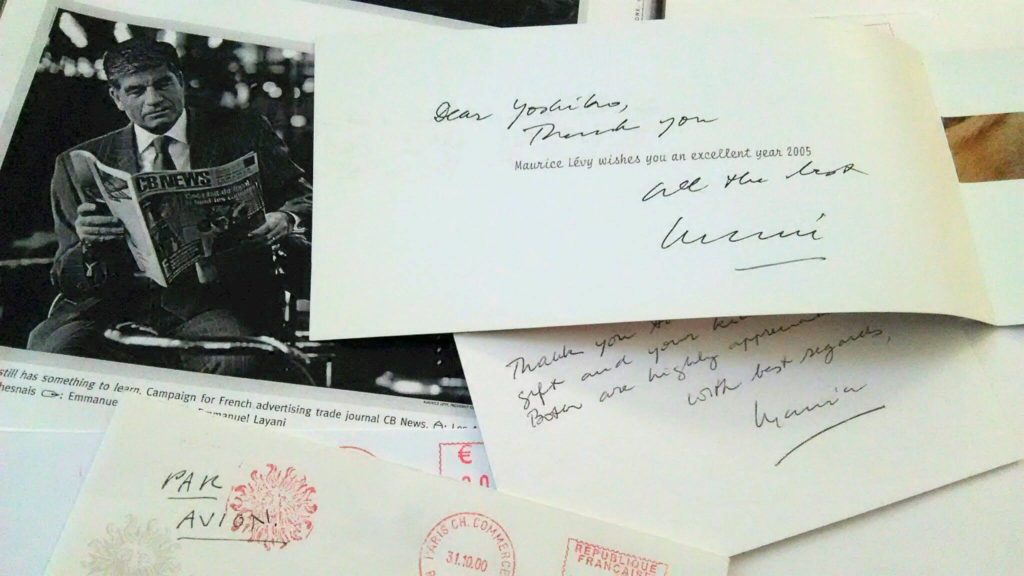 CB NEWS
still has something to learn. Campaign for French advertising trade journal CB News.
hesnais
Emmanue
mmanuel Layani
Dear Yoshiko,
Thank you
Maurice Lévy wishes you an excellent year 2005
all the best
Thank you
gift and your
Both are highly
with best regards,
PAR
AVION
€
PARIS CH. COMMERCE
31.10.00
REPUBLIQUE
FRANÇAISE